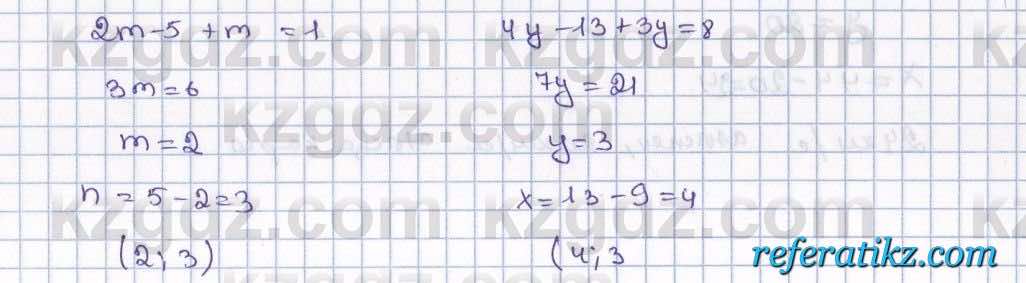 2m-5+m =1
3m=6
m=2
n=5-2=3
(2; 3)
4y-13+3y=8
7y=21
y=3
x=13-9=4
(4; 3
kzgdz.com
referatikz.com